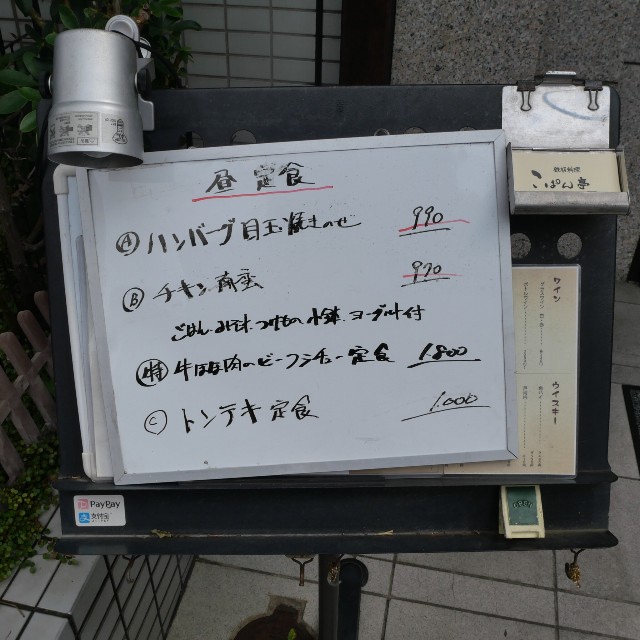 昼定食
Ⓐ ハンバーグ目玉焼きのせ 990
Ⓑ チキン南蛮 970
ごはん みそ汁 つけもの 小鉢 ヨーグルト付
㊕ 牛ほほ肉のビーフシチュー定食 1800
Ⓒ トンテキ定食 1000
こぱん亭
ワイン
ウイスキー
PayPay
支付宝